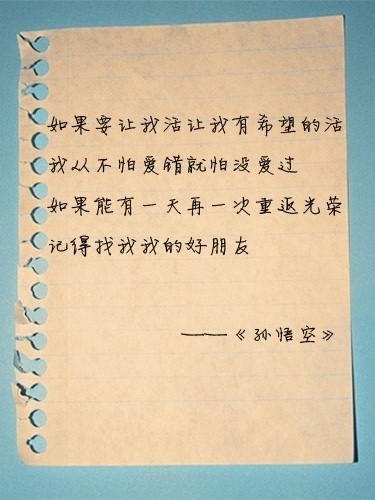 如果要让我活让我有希望的活
我从不怕爱错就怕没爱过
如果能有一天再一次重返光荣
记得找我我的好朋友
——《孙悟空》